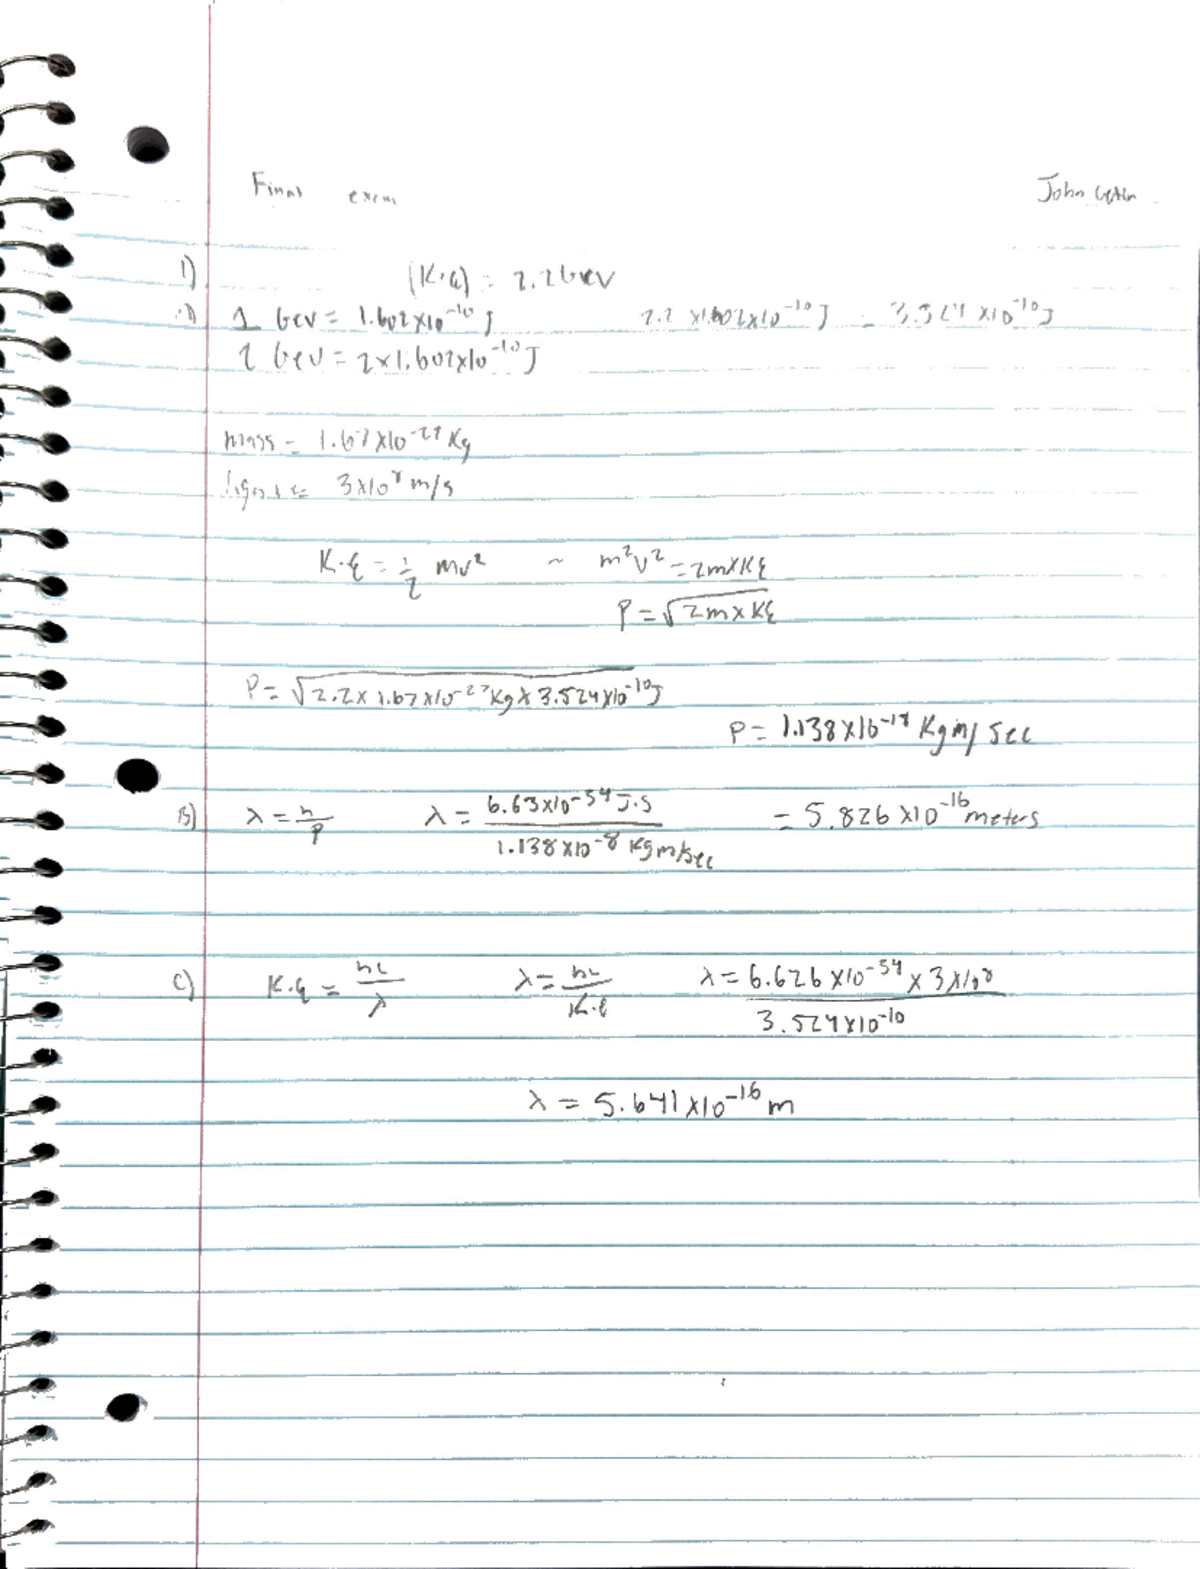 Final exam John
1)
(K.E) = 2.2 GeV
1 GeV = 1.602x10^-10 J 2.2 x1.602x10^-10 J = 3.524 x10^-10 J
2 GeV = 2x1.602x10^-10 J
mass = 1.67x10^-27 Kg
3x10^8 m/s
K.E = 1/2 mv² ~ m²v² = 2mxKE
P = √2mxKE
P = √2.2x 1.67x10^-27 Kg x 3.524x10^-10 J
P = 1.138x10^-18 Kgm/sec
B) λ = h/P λ = 6.63x10^-34 J.S / 1.138x10^-8 Kgm/sec = 5.826 x10^-16 meters
C) K.E = hc/λ λ = hc/K.E λ = 6.626 x10^-34 x 3x10^8 / 3.524x10^-10
λ = 5.641x10^-16 m